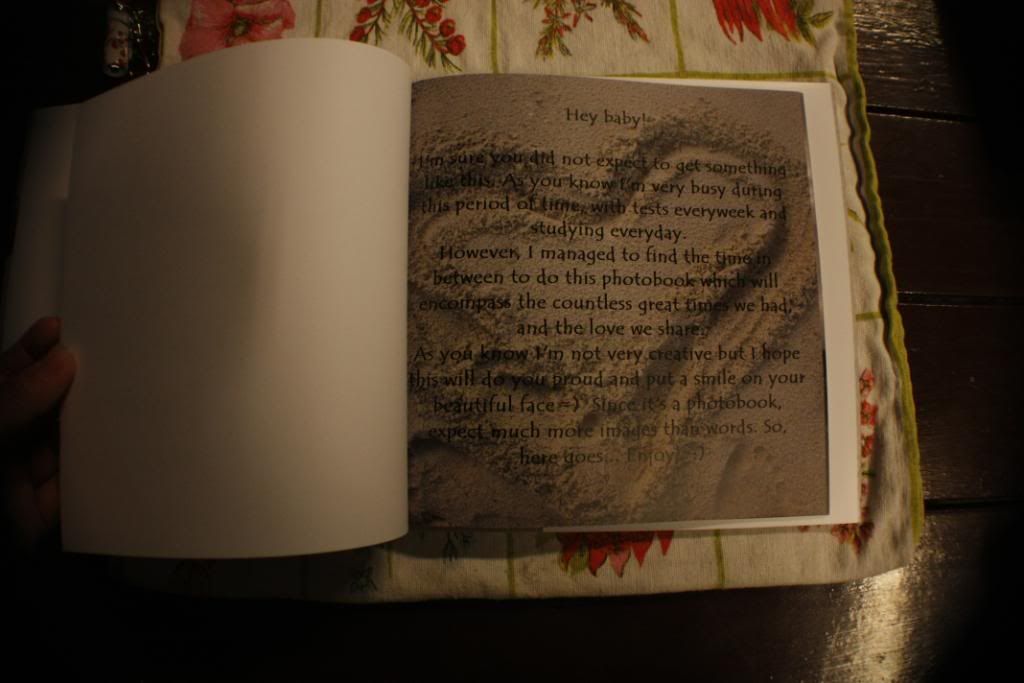 Hey baby!
I'm sure you did not expect to get something
like this. As you know I'm very busy during
this period of time, with tests everyweek and
studying everyday.
However, I managed to find the time in
between to do this photobook which will
encompass the countless great times we had,
and the love we share.
As you know I'm not very creative but I hope
this will do you proud and put a smile on your
beautiful face =) Since it's a photobook,
expect much more images than words. So,
here goes... Enjoy! :)